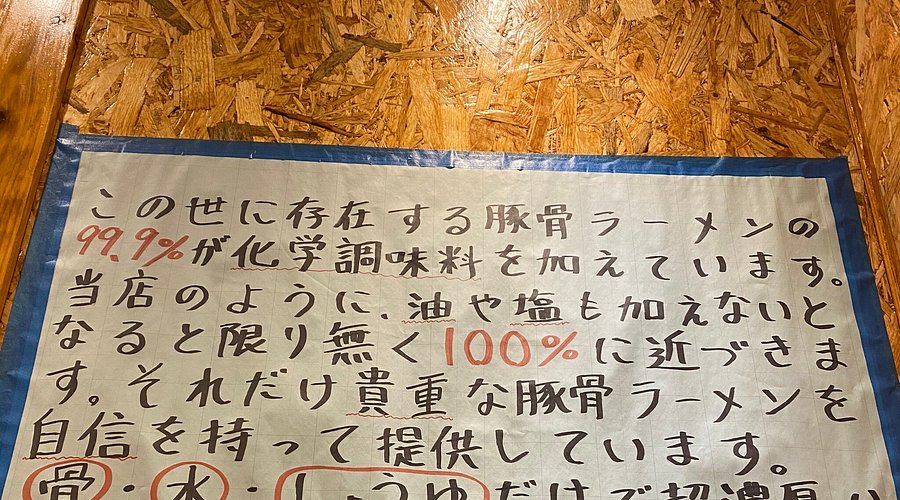 この世に存在する豚骨ラーメンの
99.9%が化学調味料を加えています。
当店のように、油や塩も加えないと
なると限り無く100%に近づきま
す。それだけ貴重な豚骨ラーメンを
自信を持って提供しています。
骨・水・しょうゆだけで超濃厚